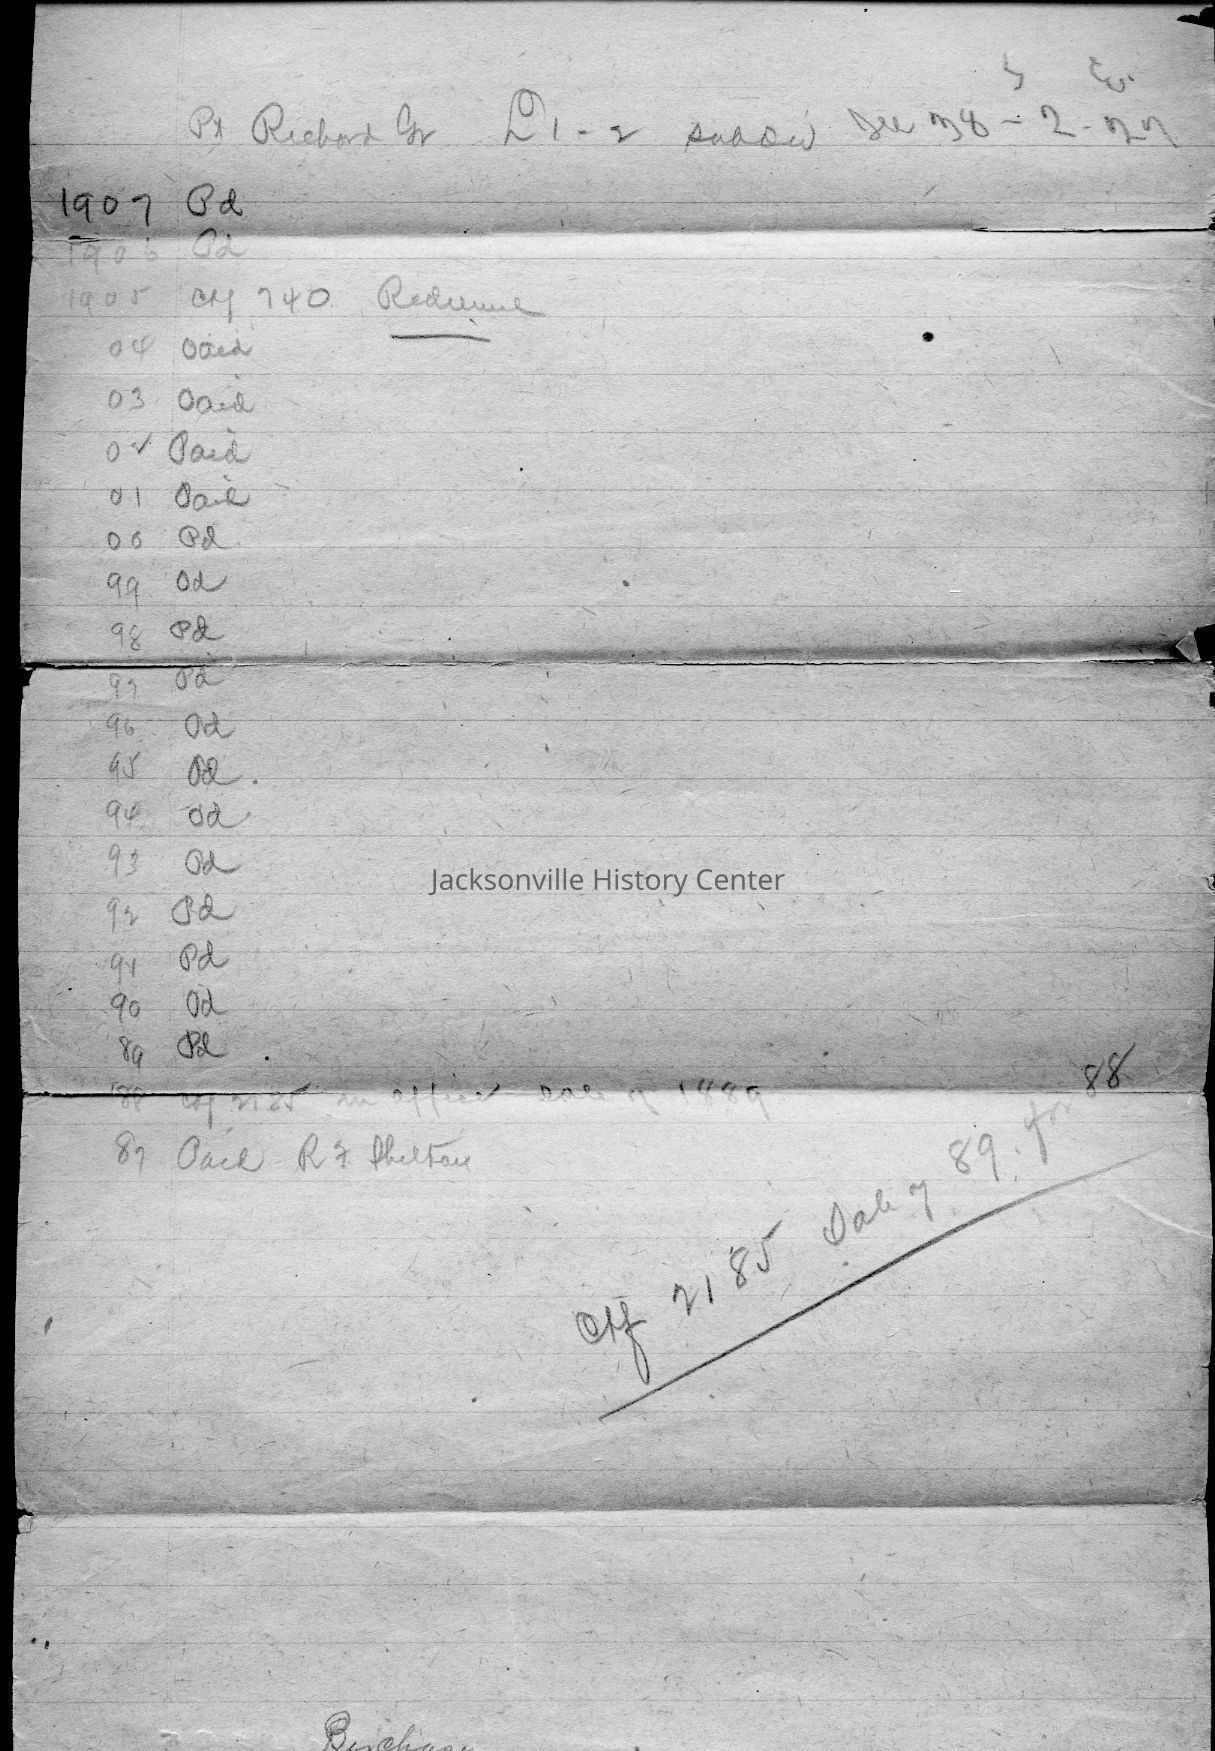 S E.
Pt Richard Gr L 1-2 subdiv Sec 38-2-27
1907 Pd
1906 Pd
1905 Ctf 740 Redeemed
04 Paid
03 Paid
02 Paid
01 Paid
00 Pd
99 Pd
98 Pd
97 Pd
96 Pd
95 Pd.
94 Pd
93 Pd
92 Pd
91 Pd
90 Pd
89 Pd
88 Ctf 2185 in office Sale of 1889
87 Paid R F Shelton
Ctf 2185 Sale of 89. for 88
Jacksonville History Center